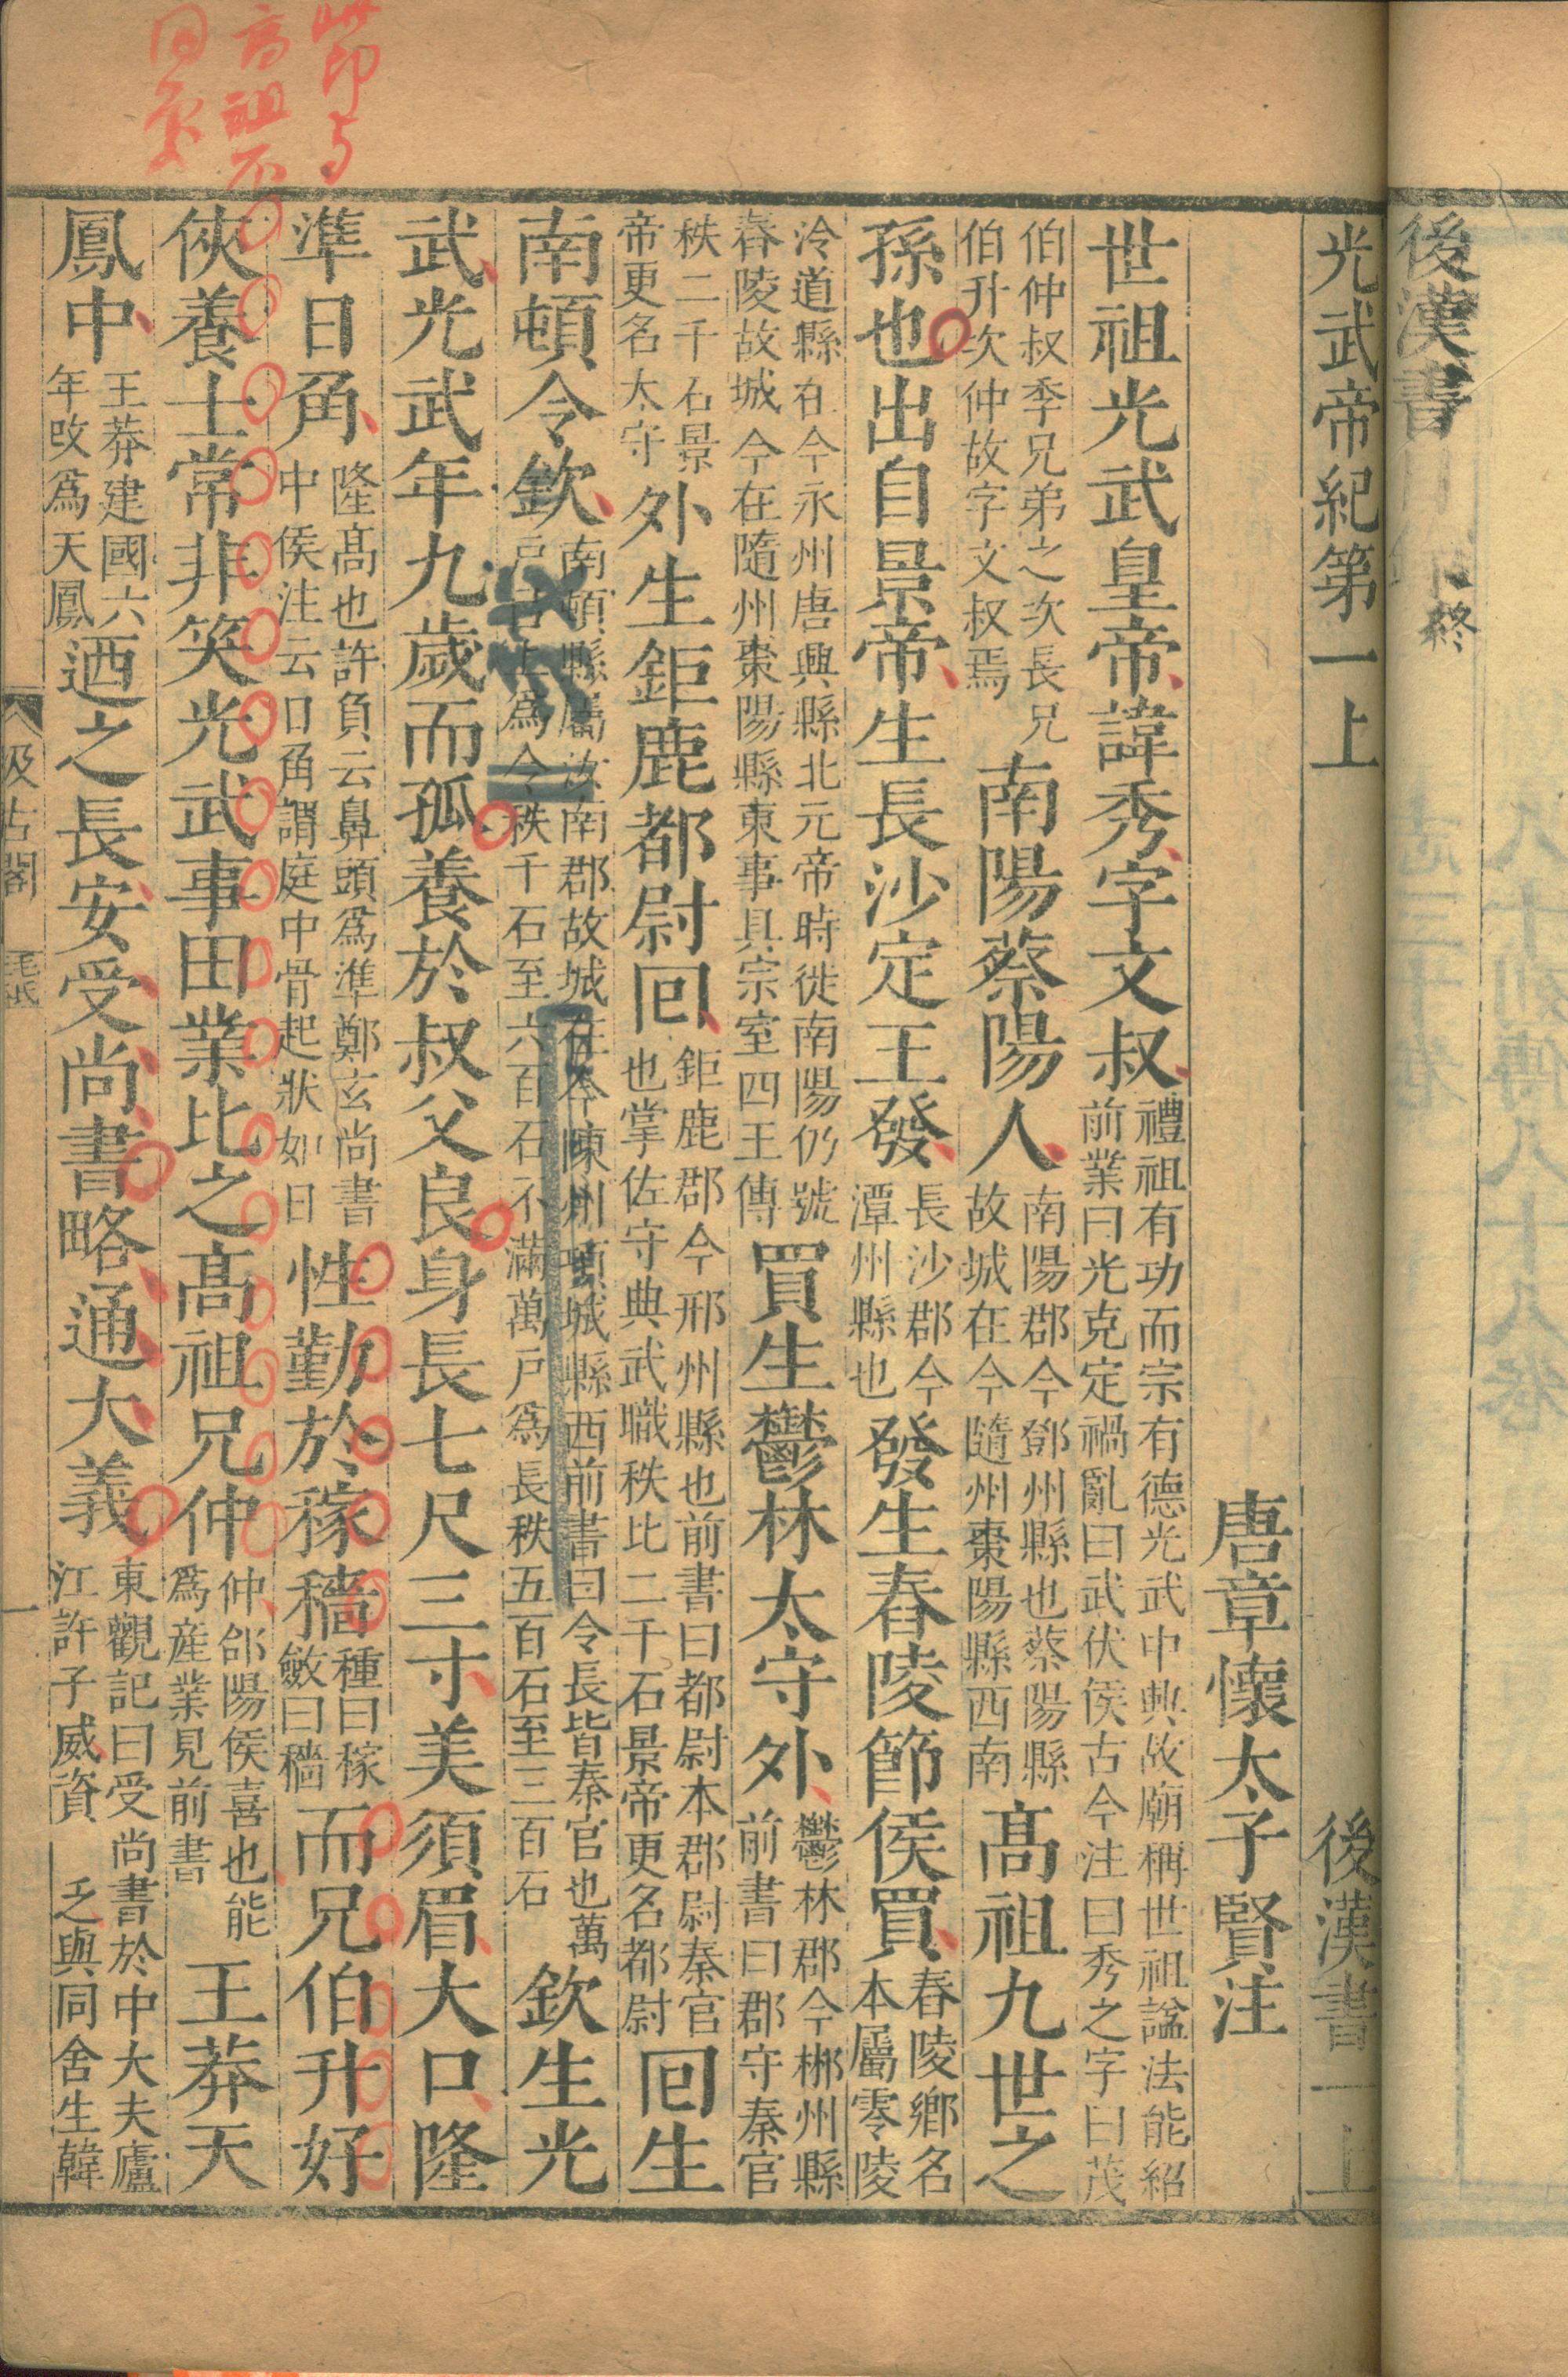 後漢書
終
光武帝紀第一上 後漢書一上
唐章懷太子賢注
世祖光武皇帝諱秀字文叔禮祖有功而宗有德光武中興故廟稱世祖諡法能紹前業曰光克定禍亂曰武伏侯古今注曰秀之字曰茂
伯仲叔季兄弟之次長兄伯升次仲故字文叔焉南陽蔡陽人南陽郡今鄧州縣也蔡陽縣故城在今隨州棗陽縣西南高祖九世之
孫也出自景帝生長沙定王發長沙郡今潭州縣也發生舂陵節侯買舂陵鄉名本屬零陵
泠道縣在今永州唐興縣北元帝時徙南陽仍號舂陵故城今在隨州棗陽縣東事具宗室四王傳買生鬱林太守外鬱林郡今郴州縣前書曰郡守秦官
秩二千石景帝更名太守外生鉅鹿都尉回鉅鹿郡今邢州縣也前書曰都尉本郡尉秦官也掌佐守典武職秩比二千石景帝更名都尉回生
南頓令欽南頓縣屬汝南郡故城在今陳州項城縣西前書曰令長皆秦官也萬戶已上為令秩千石至六百石不滿萬戶為長秩五百石至三百石欽生光
武光武年九歲而孤養於叔父良身長七尺三寸美須眉大口隆
準日角隆高也許負云鼻頭為準鄭玄尚書中侯注云日角謂庭中骨起狀如日性勤於稼穡種曰稼斂曰穡而兄伯升好
俠養士常非笑光武事田業比之高祖兄仲仲郃陽侯喜也能為産業見前書王莽天
鳳中王莽建國六年改為天鳳迺之長安受尚書略通大義東觀記曰受尚書於中大夫廬江許子威資乏與同舍生韓
汲古閣 毛氏 一
高祖不